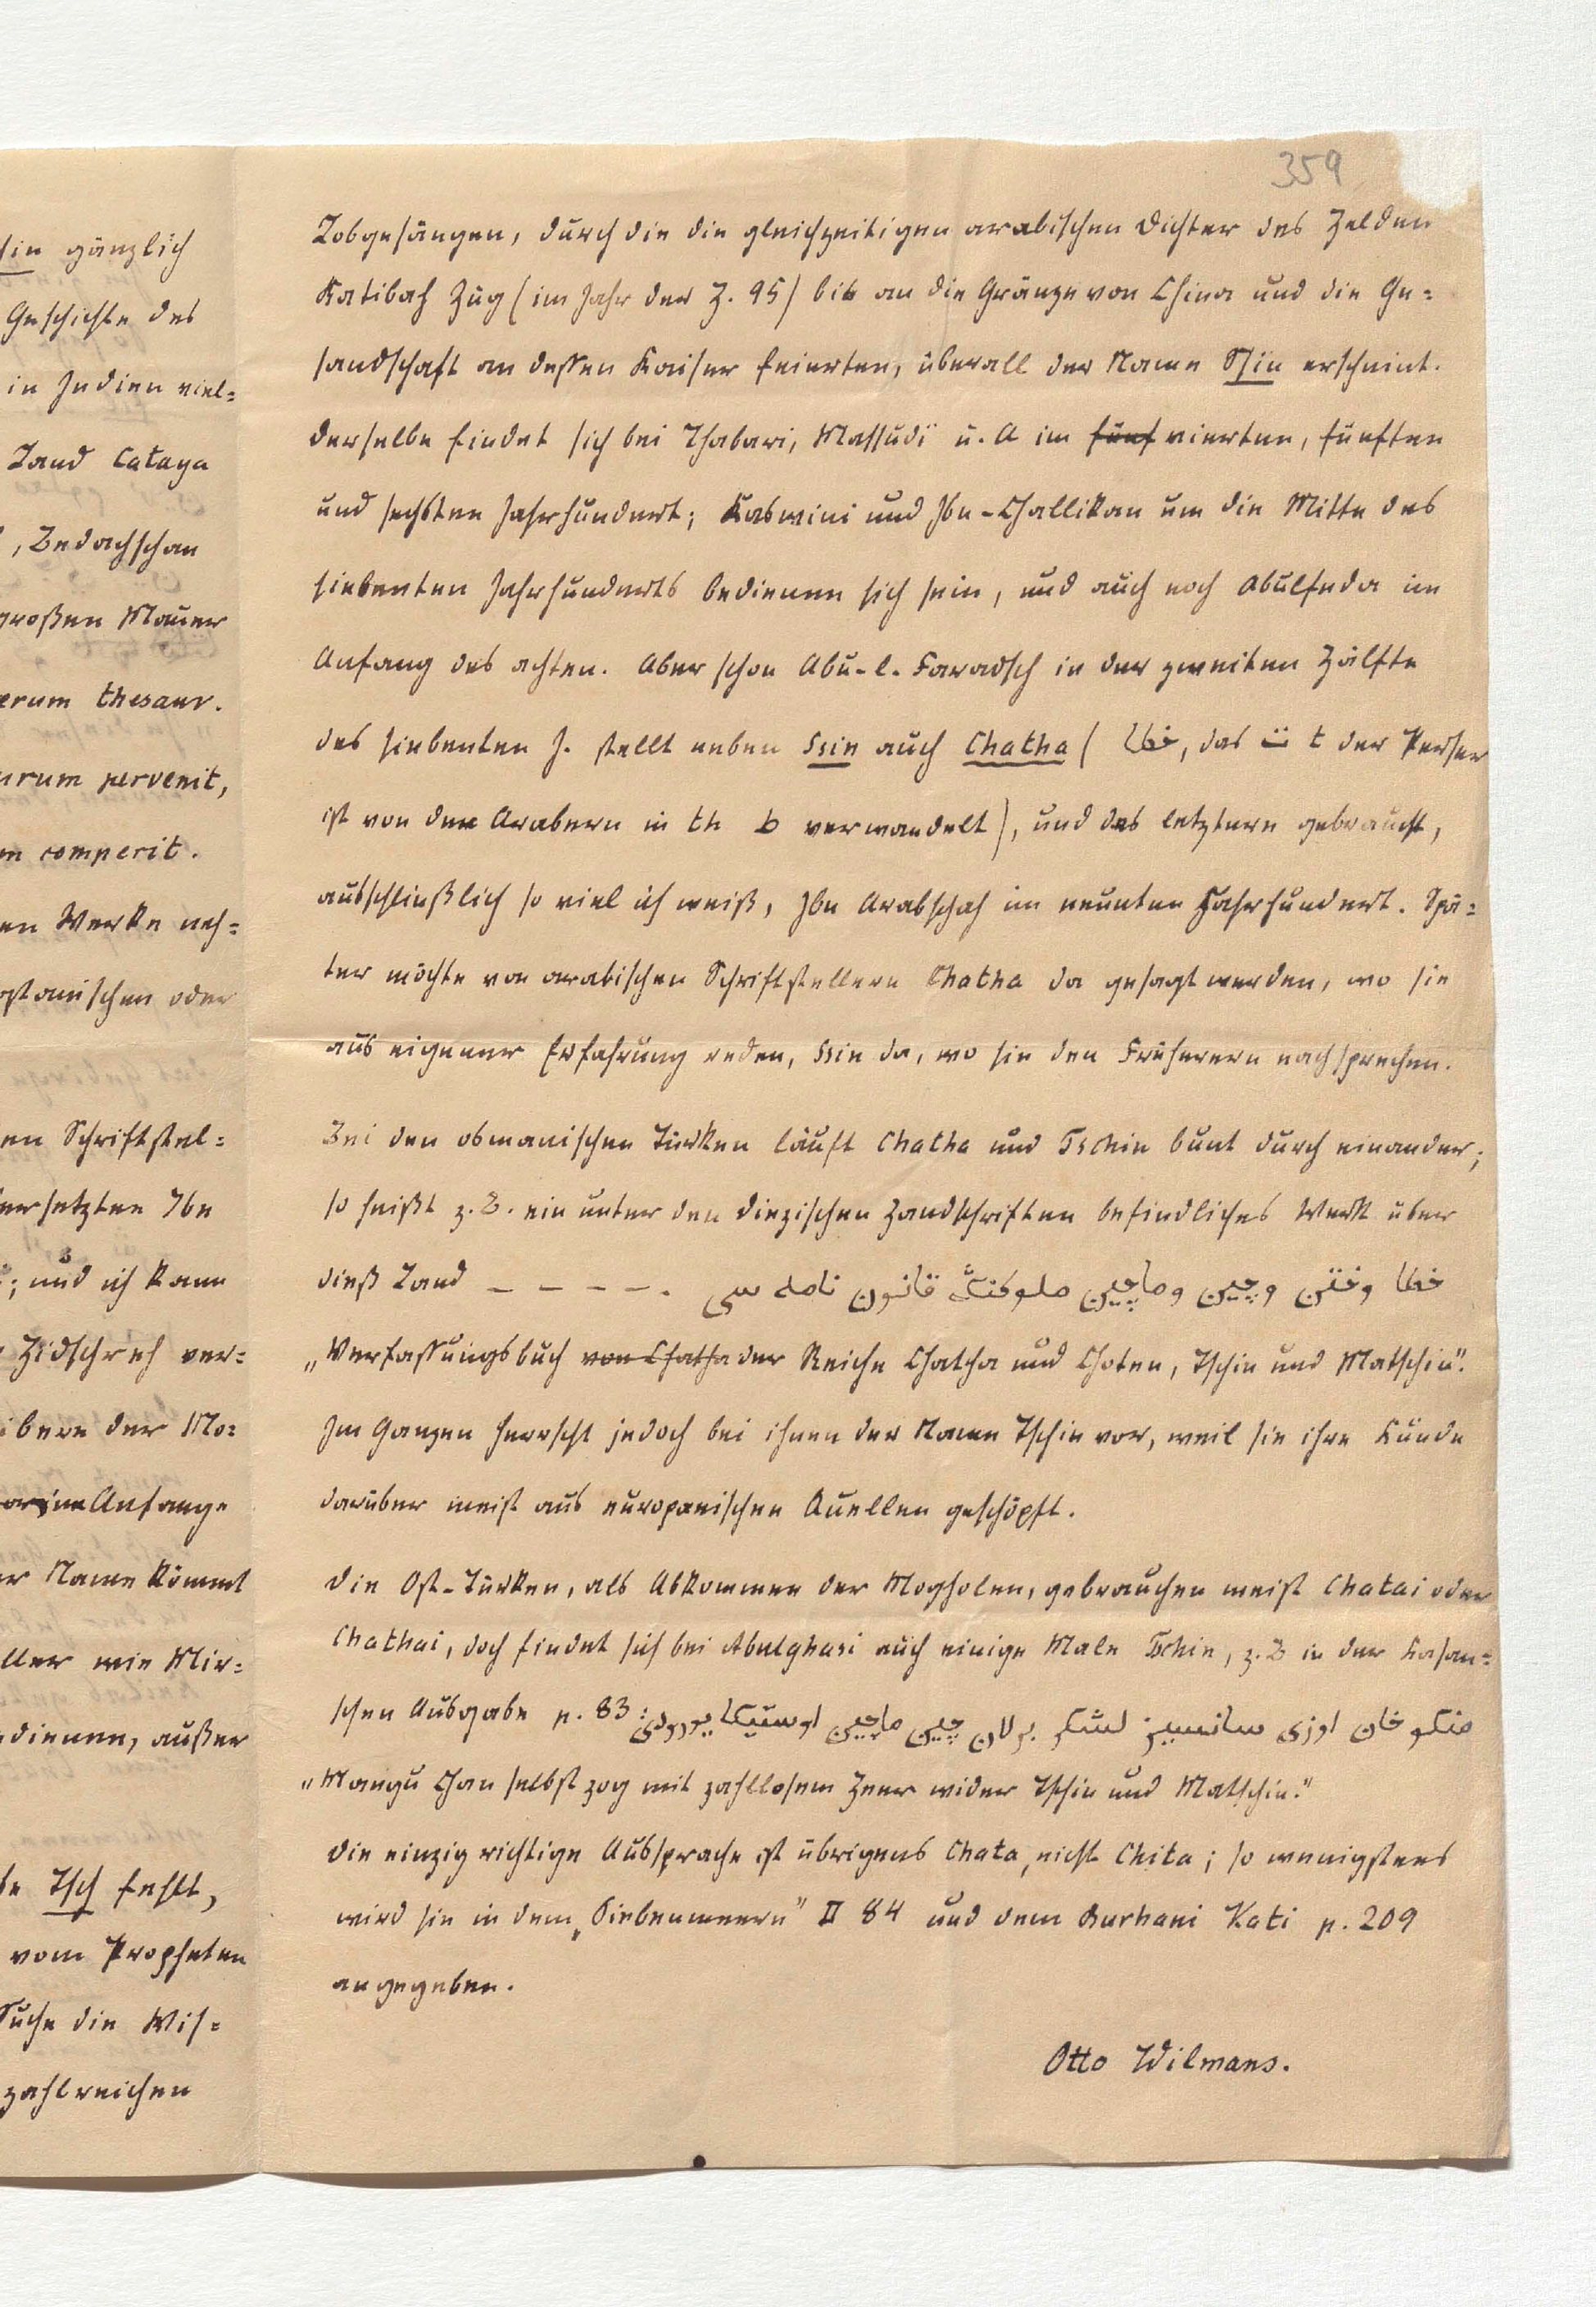 359
Lobgesängen, durch die die gleichzeitigen arabischen Dichter des Helden
Katibah Zug (im Jahr der H. 95) bis an die Gränze von China und die Ge=
sandschaft an dessen Kaiser feierten, überall der Name Ssin erscheint.
Derselbe findet sich bei Thabari, Massudï u. A im fünf vierten, fünften
und sechsten Jahrhundert; Kaswini und Ibn-Challikan um die Mitte des
siebenten Jahrhunderts bedienen sich sein, und auch noch Abulfeda im
Anfang des achten. Aber schon Abu-l-Faradsch in der zweiten Hälfte
des siebenten J. stellt neben Ssin auch Chatha ( خطا, das ت t der Perser
ist von den Arabern in th ط verwandelt), und das letztere gebraucht,
ausschließlich so viel ich weiß, Ibn Arabschah im neunten Jahrhundert. Spä=
ter möchte von arabischen Schriftstellern Chatha da gesagt werden, wo sie
aus eigener Erfahrung reden, Ssin da, wo sie den Früherern nachsprechen.
Bei den osmanischen Türken läuft Chatha und Tschin bunt durch einander;
so heißt z. B. ein unter den Diezischen Handschriften befindliches Werk über
dieß Land – – – – – . خطا وختن وچين وماچين ملوكنڭ قانون نامه سى
„Verfassungsbuch von Chatha der Reiche Chatha und Choten, Tschin und Matschin".
Im Ganzen herrscht jedoch bei ihnen der Name Tschin vor, weil sie ihre Kunde
darüber meist aus europäischen Quellen geschöpft.
Die Ost-Türken, als Abkommen der Mogholen, gebrauchen meist Chatai oder
Chathai, doch findet sich bei Abulghasi auch einige Male Tschin, z. B in der Kasan=
schen Ausgabe p. 83: منكو خان اوزى سانسيز لشكر برلان چين ماچين اوستيكا يورودى
„Mangu Chan selbst zog mit zahllosem Heer wider Tschin und Matschin."
Die einzig richtige Aussprache ist übrigens Chata, nicht Chita; so wenigstens
wird sie in dem „Siebenmeere" II 84 und dem Burhani Kati p. 209
angegeben.
Otto Wilmans.
sin gänzlich
Geschichte des
in Indien viel=
Land Cataya
, Bedachschan
großen Mauer
erum thesaur.
urum pervenit,
m comperit.
en Werke neh=
ostanischen oder
en Schriftstel=
ersetzten Ibn
; und ich kann
Hidschreh ver=
ibern der Mo=
Anfange
er Name kömmt
ller wie Mir=
dienen, außer
Tsch fehlt,
vom Propheten
Suche die Wis=
zahlreichen